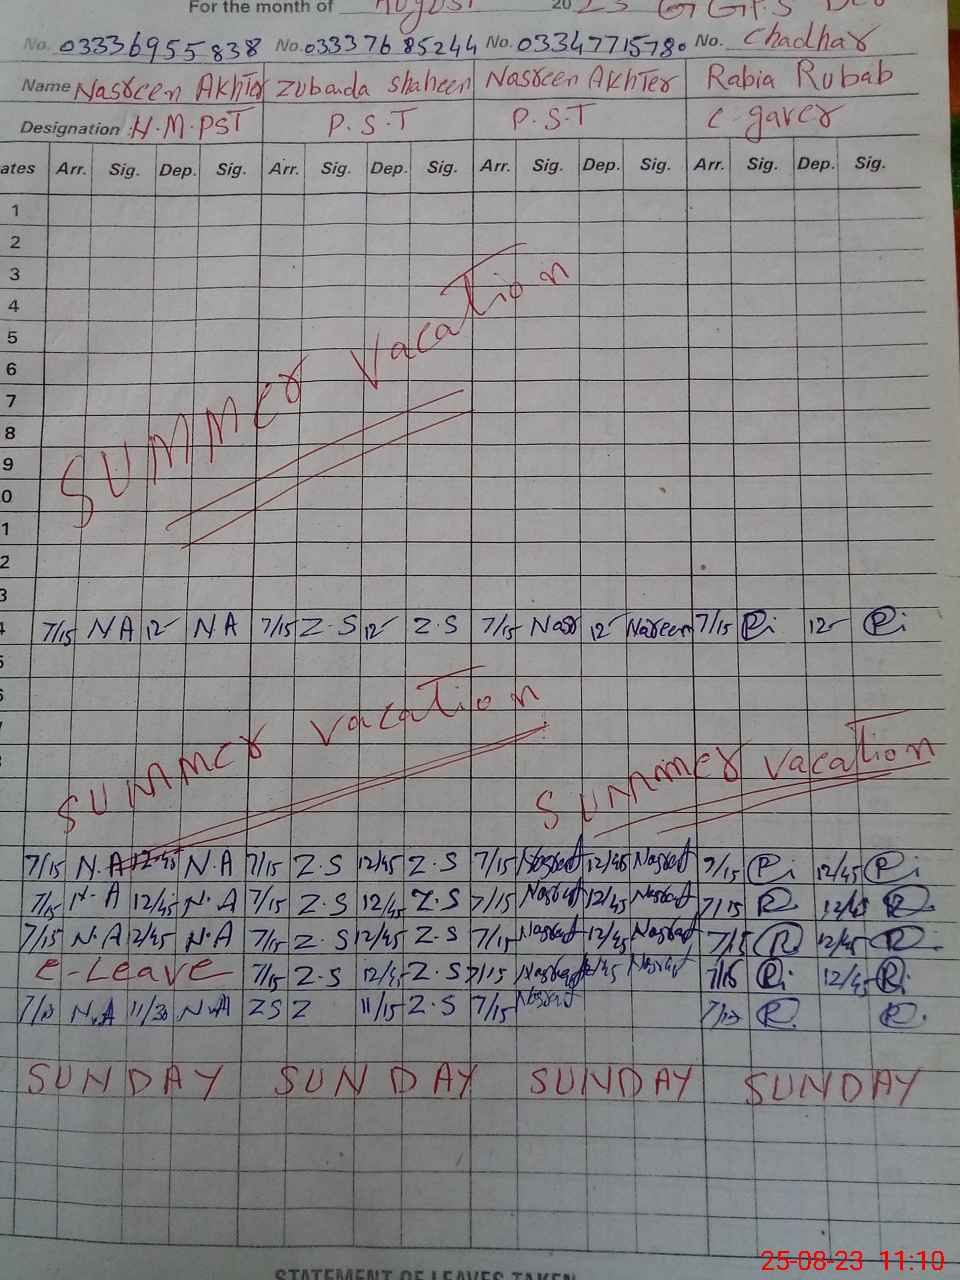 For the month of August 2023 GGPS
No. 03336955838 No. 03337685244 No. 03347715780 No. Chadhar
Name Nasreen Akhter Zubaida Shaheen Nasreen Akhter Rabia Rubab
Designation H.M.PST P.S.T P.S.T C-gaver
ates Arr. Sig. Dep. Sig. Arr. Sig. Dep. Sig. Arr. Sig. Dep. Sig. Arr. Sig. Dep. Sig.
1
2
3
4
5
6
7
8
9
0
1
2
3
Summer Vacation
4 7/15 NA 12 NA 7/15 Z.S 12 Z.S 7/15 Nasr 12 Nasreen 7/15 Ri 12 Ri
5
6
Summer vacation
Summer vacation
7/15 N.A 12-45 N.A 7/15 Z.S 12/45 Z.S 7/15 12/45 7/15 Ri 12/45 Ri
7/15 N-A 12/45 N.A 7/15 Z.S 12/45 Z.S 7/15 12/45 7/15 R 12/45 R
7/15 N.A 12/45 N.A 7/15 Z.S 12/45 Z.S 7/15 12/45 7/15 R 12/45 R
e-Leave 7/15 Z.S 12/45 Z.S 7/15 12/45 7/15 Ri 12/45 Ri
N.A 11/30 N.A ZS Z 11/15 Z.S 7/15 R R
SUNDAY SUNDAY SUNDAY SUNDAY
STATEMENT OF LEAVES TAKEN
25-08-23 11:10